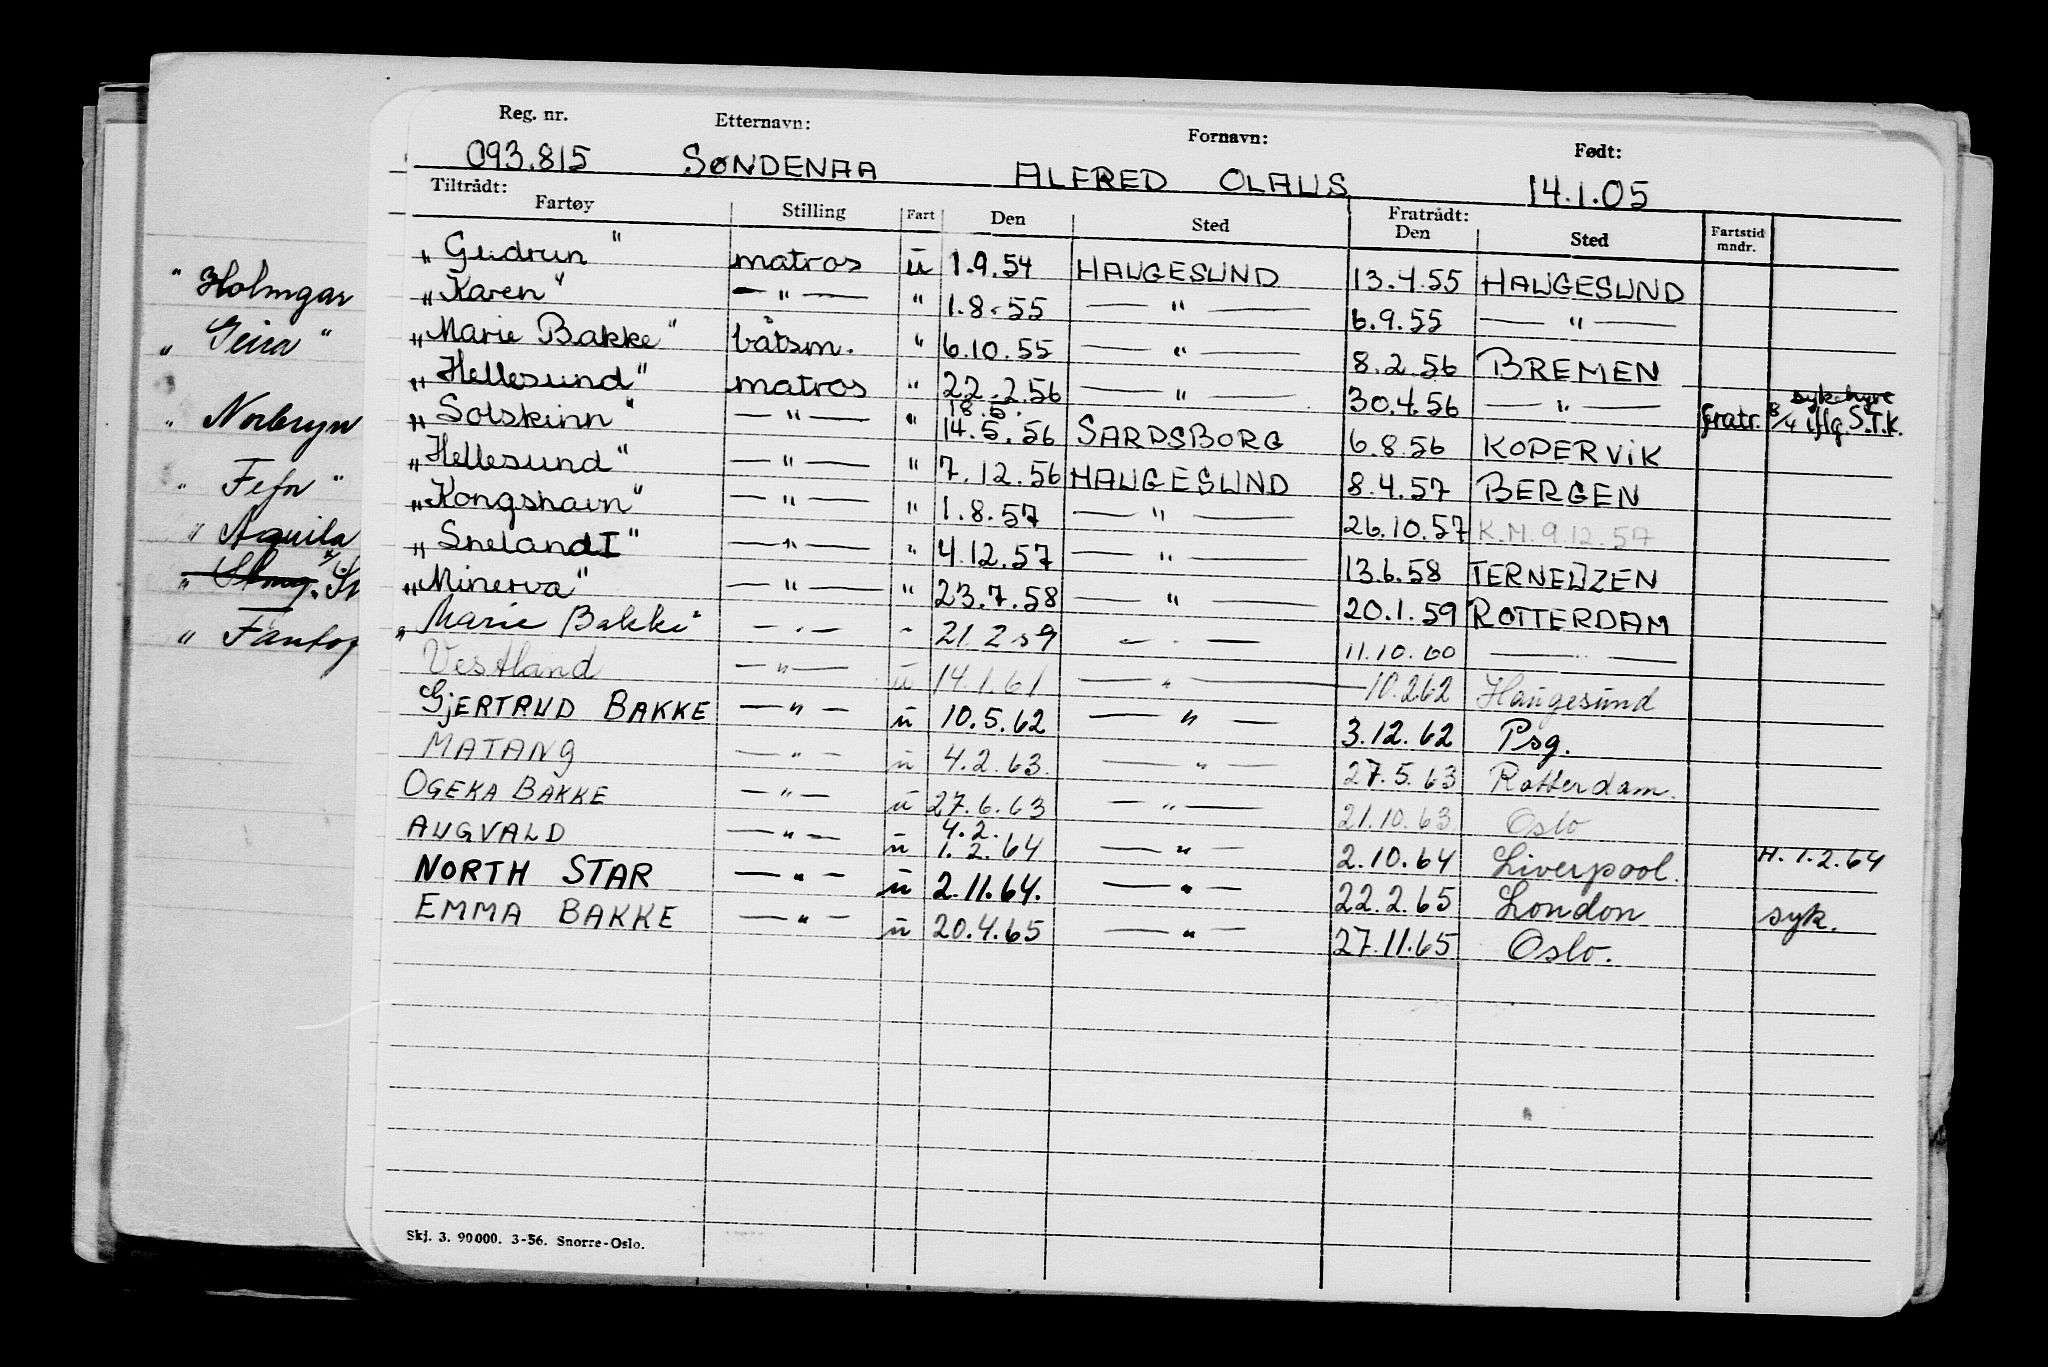 Reg. nr. Etternavn: Fornavn: Født:
093.815 SØNDENAA ALFRED OLAUS 14.1.05
Tiltrådt: Fratrådt:
Fartøy Stilling Fart Den Sted Den Sted Fartstid mndr.
„Gudrun" matros u 1.9.54 HAUGESUND 13.4.55 HAUGESUND
„Karen" — " — " 1.8.55 — " — 6.9.55 — " —
„Marie Bakke" båtsm. " 6.10.55 — " — 8.2.56 BREMEN
„Hellesund" matros " 22.2.56 — " — 30.4.56 — " — fratr. 8/4 iflg. S.T.K.
syk.hyre
18.5.
„Solskinn" — " — " 14.5.56 SARPSBORG 6.8.56 KOPERVIK
„Hellesund" — " — " 7.12.56 HAUGESUND 8.4.57 BERGEN
„Kongshavn" — " — " 1.8.57 — " — 26.10.57 K.M. 9.12.57
„Sneland I" — " — " 4.12.57 — " — 13.6.58 TERNEUZEN
„Minerva" — " — " 23.7.58 — " — 20.1.59 ROTTERDAM
„Marie Bakke" — " — " 21.2.59 — " — 11.10.60 — " —
Vestland — " — u 14.1.61 — " — 10.2.62 Haugesund
GJERTRUD BAKKE — " — u 10.5.62 — " — 3.12.62 Psg.
MATANG — " — u 4.2.63 — " — 27.5.63 Rotterdam.
OGEKA BAKKE — " — u 27.6.63 — " — 21.10.63 Oslo
4.2.
AUGVALD — " — u 1.2.64 — " — 2.10.64 Liverpool. H. 1.2.64
NORTH STAR — " — u 2.11.64. — " — 22.2.65 London syk.
EMMA BAKKE — " — u 20.4.65 — " — 27.11.65 Oslo.
Skj. 3. 90000. 3-56. Snorre-Oslo.
" Holmgar
„ Geira "
„ Norbryn
" Fefor "
" Aquila
" Fantof